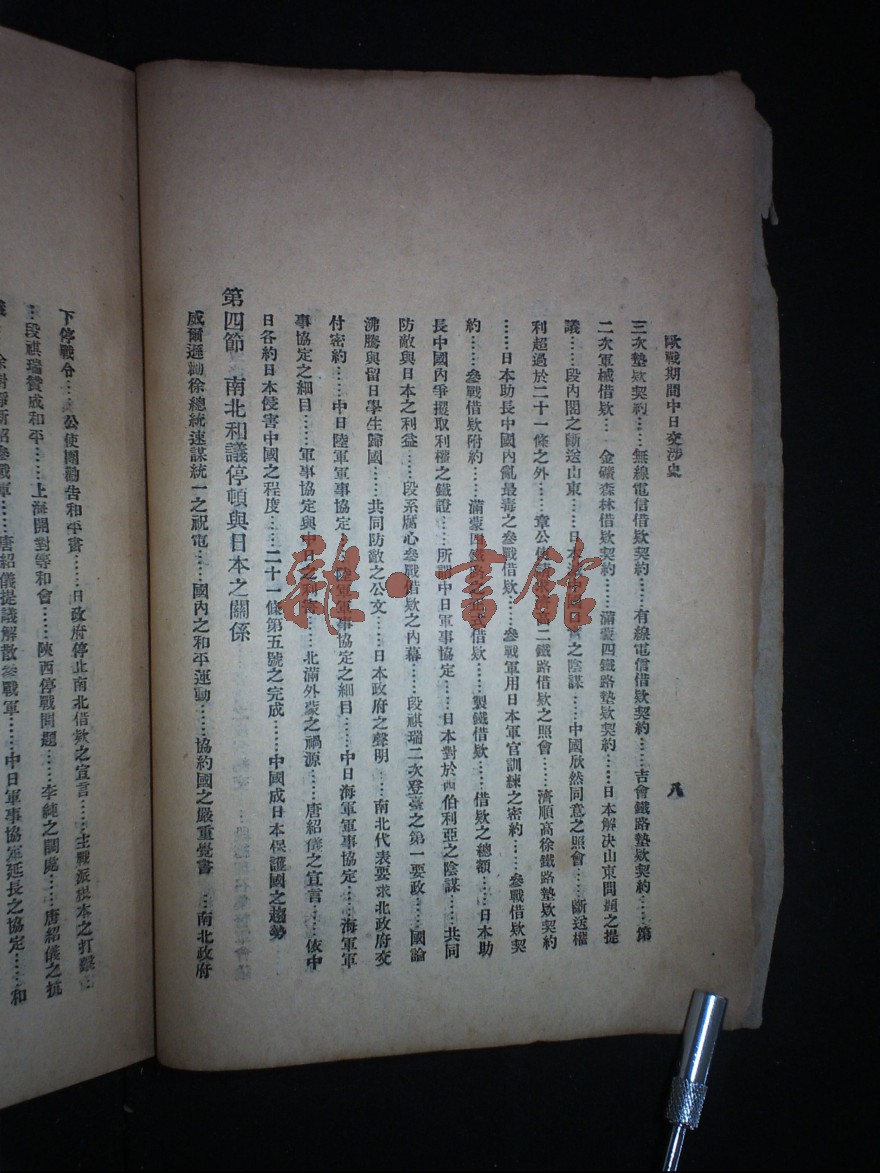 歐戰期間中日交涉史
八
三次墊欵契約……無線電信借欵契約……有線電信借欵契約……吉會鐵路墊欵契約……第
二次軍械借欵……金礦森林借欵契約……滿蒙四鐵路墊欵契約……日本解決山東問題之提
議……段內閣之斷送山東……日本 中國 之陰謀……中國欣然同意之照會……斷送權
利超過於二十一條之外……章公使 二鐵路借欵之照會……濟順高徐鐵路墊欵契約
……日本助長中國內亂最毒之參戰借欵……參戰軍用日本軍官訓練之密約……參戰借欵契
約……參戰借欵附約……滿蒙四鐵路之正式借欵……製鐵借欵……借欵之總額……日本助
長中國內爭攫取利權之鐵證……所謂中日軍事協定……日本對於西伯利亞之陰謀……共同
防敵與日本之利益……段系厲心參戰借欵之內幕……段祺瑞二次登臺之第一要政……國論
沸騰與留日學生歸國……共同防敵之公文……日本政府之聲明……南北代表要求北政府交
付密約……中日陸軍軍事協定……陸軍軍事協定之細目……中日海軍軍事協定……海軍軍
事協定之細目……軍事協定與中日之利害……北滿外蒙之禍源……唐紹儀之宣言……依中
日各約日本侵害中國之程度……二十一條第五號之完成……中國成日本保護國之趨勢
第四節 南北和議停頓與日本之關係
威爾遜勸徐總統速謀統一之祝電……國內之和平運動……協約國之嚴重覺書……南北政府
下停戰令……公使團勸告和平書……日政府停止南北借欵之宣言……主戰派根本之打擊…
…段祺瑞贊成和平……上海開對等和會……陝西停戰問題……李純之調處……唐紹儀之抗
議……徐樹錚新招參戰軍……唐紹儀提議解散參戰軍……中日軍事協定延長之協定……和
雜·書館